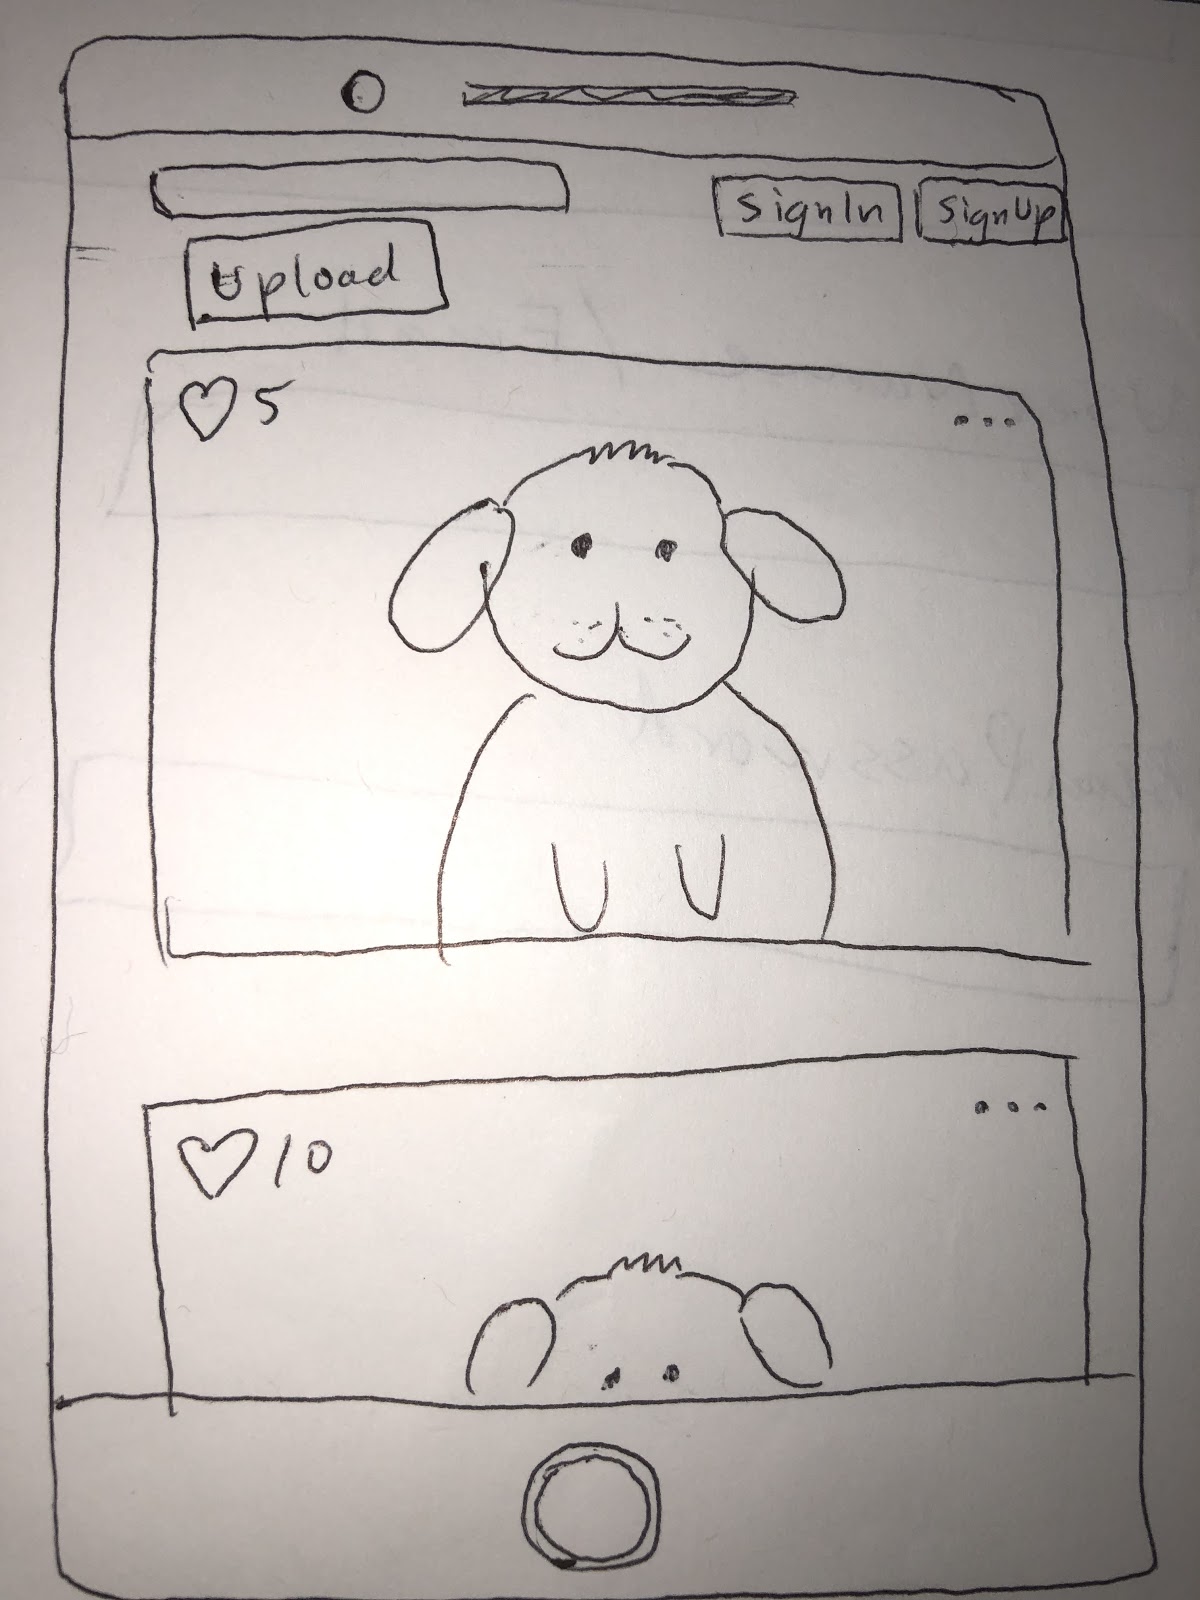 SignIn SignUp
Upload
5
...
10
...